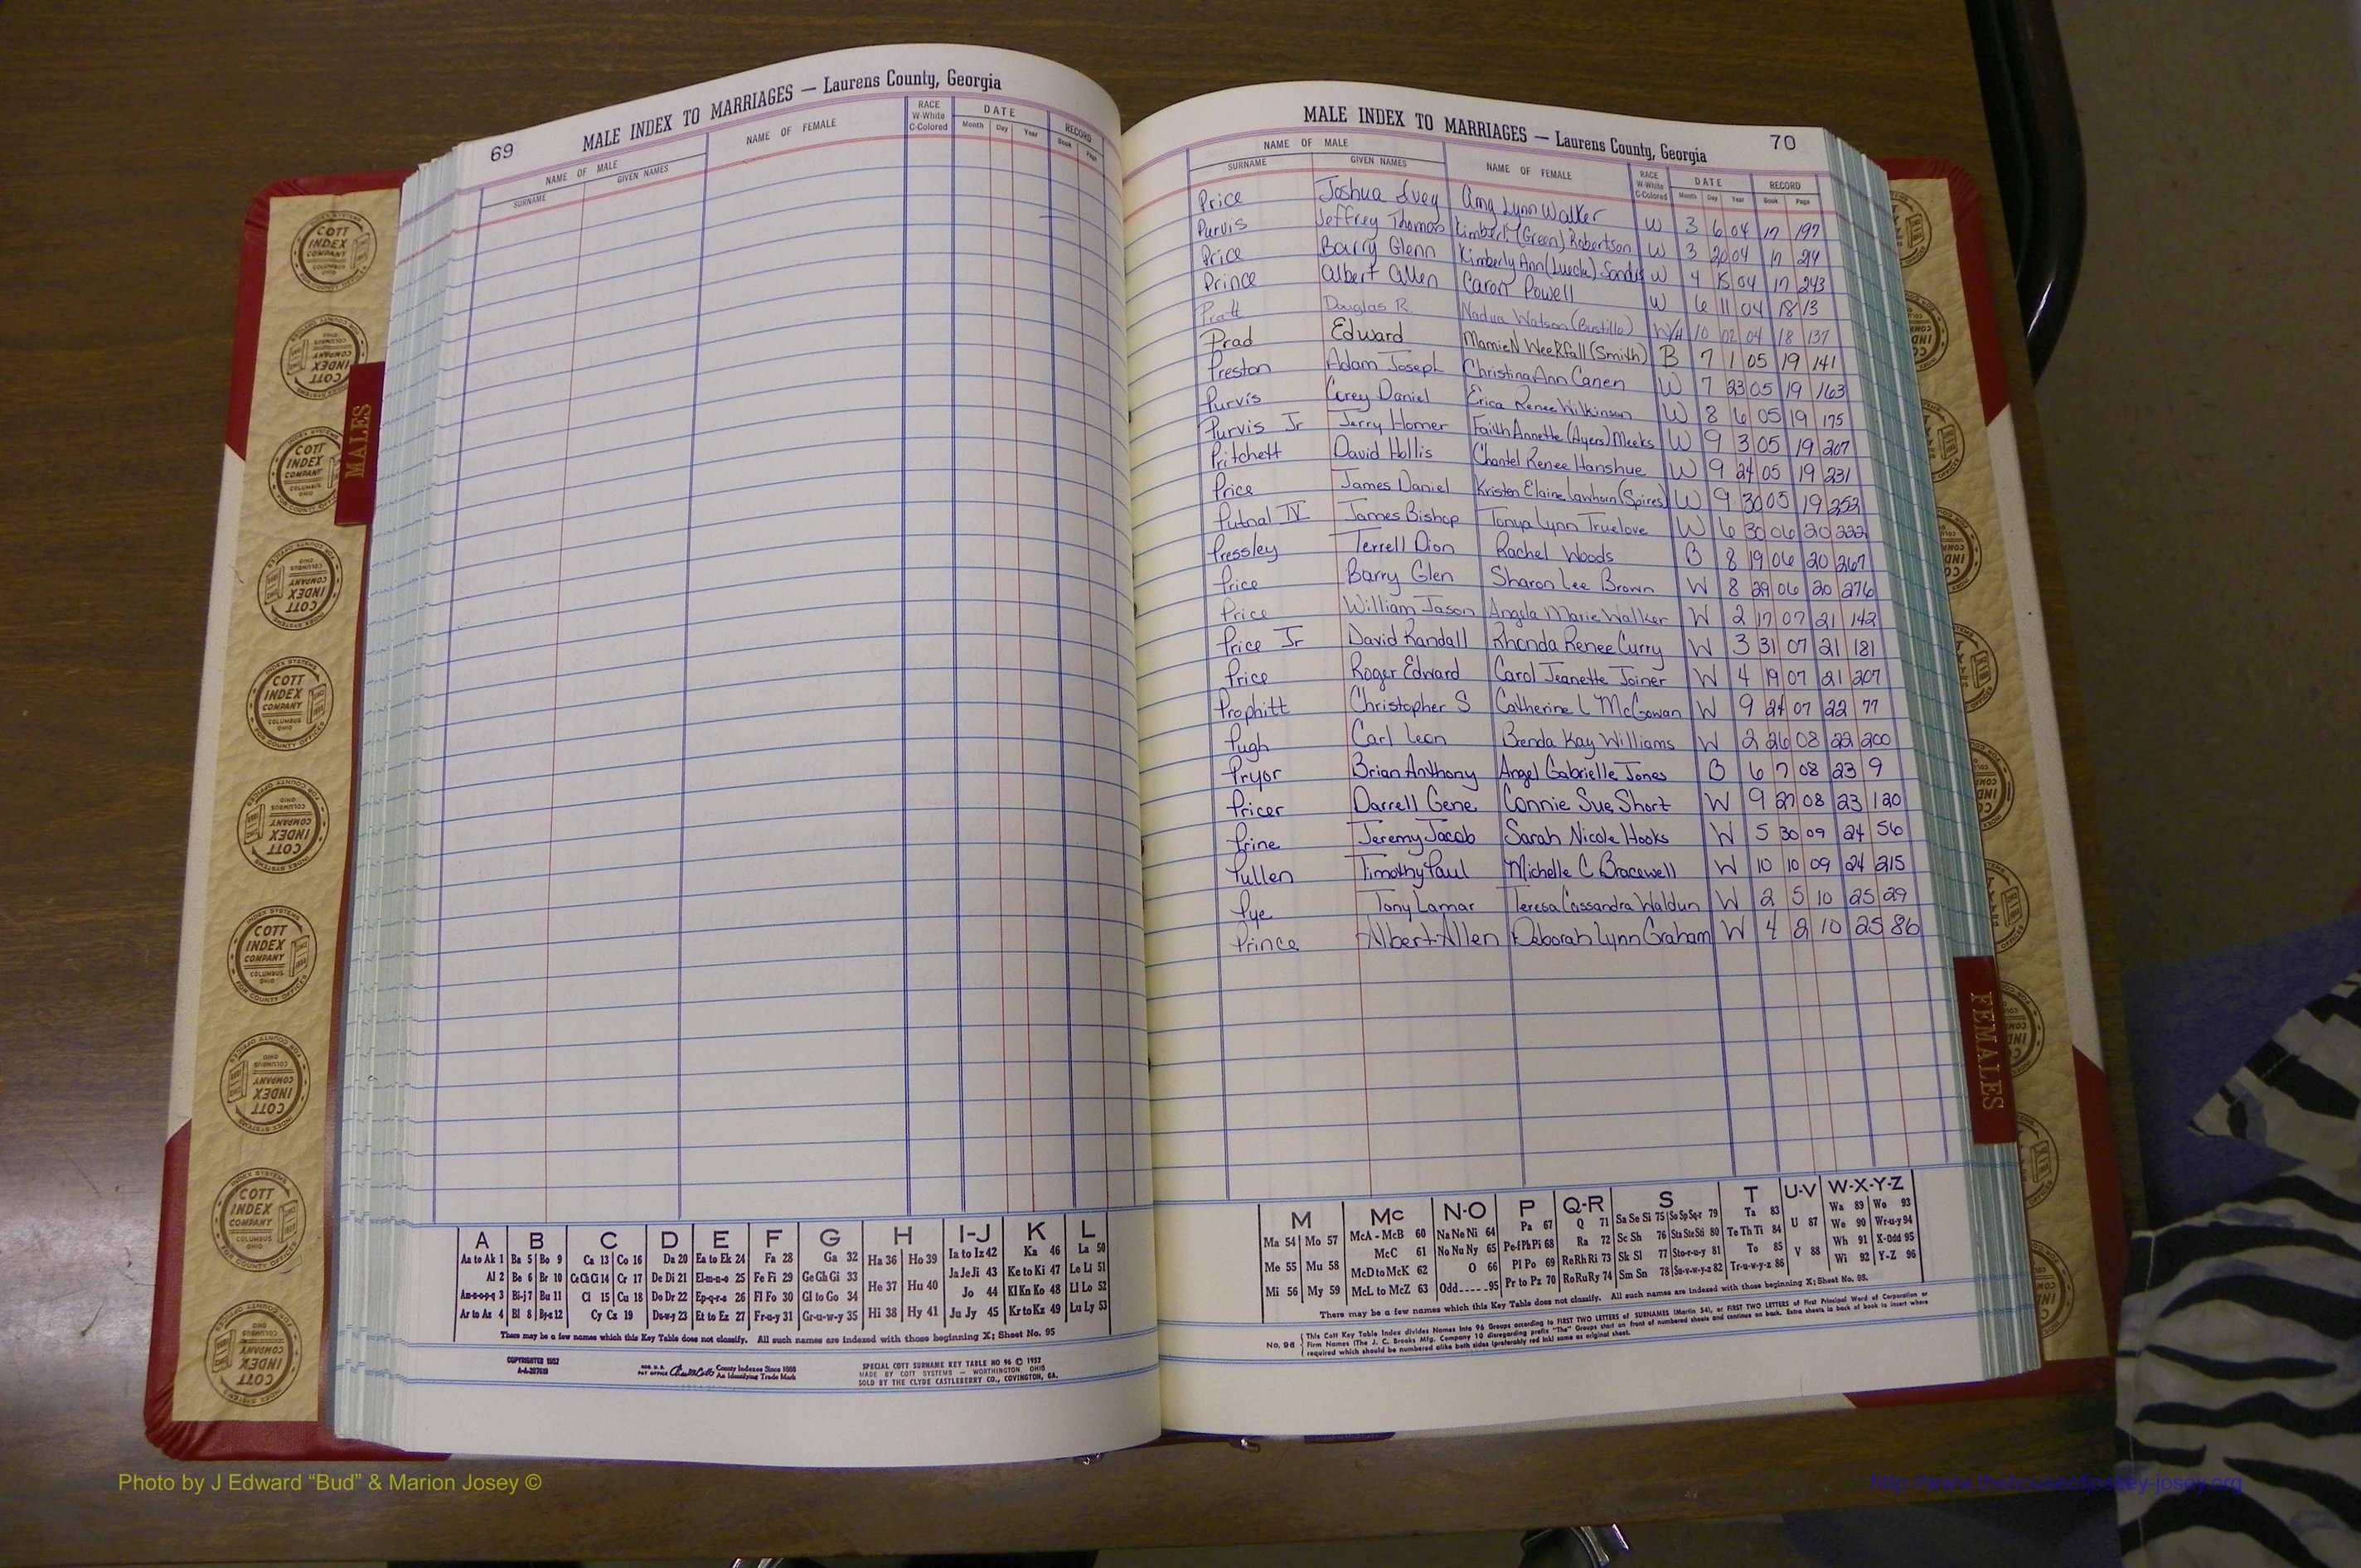 69
MALE INDEX TO MARRIAGES — Laurens County, Georgia
NAME OF MALE
SURNAME GIVEN NAMES
NAME OF FEMALE
RACE
W-White
C-Colored
DATE
Month Day Year
RECORD
Book Page
MALES
COTT INDEX COMPANY
COLUMBUS OHIO
INDEX SYSTEMS
FOR COUNTY OFFICES
A B C D E F G H I-J K L
Aa to Ak 1 Ba 5 Bo 9 Ca 13 Co 16 Da 20 Ea to Ek 24 Fa 28 Ga 32 Ha 36 Ho 39 Ia to Iz 42 Ka 46 La 50
Al 2 Be 6 Br 10 Ce Ch Ci 14 Cr 17 De Di 21 El-m-n-o 25 Fe Fi 29 Ge Gh Gi 33 He 37 Hu 40 Ja Je Ji 43 Ke to Ki 47 Le Li 51
Am-n-o-p-q 3 Bi-j 7 Bu 11 Cl 15 Cu 18 Do Dr 22 Ep-q-r-s 26 Fl Fo 30 Gl to Go 34 Jo 44 Kl Kn Ko 48 Ll Lo 52
Ar to Az 4 Bl 8 By-z 12 Cy Cz 19 Du-w-y 23 Et to Ez 27 Fr-u-y 31 Gr-u-w-y 35 Hi 38 Hy 41 Ju Jy 45 Kr to Kz 49 Lu Ly 53
There may be a few names which this Key Table does not classify. All such names are indexed with those beginning X; Sheet No. 95
COPYRIGHTED 1952
County Indexes Since 1888
An Identifying Trade Mark
SPECIAL COTT SURNAME KEY TABLE NO 96 © 1952
MADE BY COTT SYSTEMS — WORTHINGTON, OHIO
SOLD BY THE CLYDE CASTLEBERRY CO., COVINGTON, GA.
MALE INDEX TO MARRIAGES — Laurens County, Georgia
70
NAME OF MALE
SURNAME GIVEN NAMES
NAME OF FEMALE
RACE
W-White
C-Colored
DATE
Month Day Year
RECORD
Book Page
Price Joshua Ivey Amy Lynn Walker W 3 6 04 17 197
Purvis Jeffrey Thomas Kimberly (Green) Robertson W 3 20 04 17 214
Price Barry Glenn Kimberly Ann (Lueck) W 4 15 04 17 243
Prince Albert Allen Caron Powell W 6 11 04 18 13
Pratt Douglas R. Nadua Watson (Bustillo) W/H 10 02 04 18 137
Prad Edward Mamie N Weekfall (Smith) B 7 1 05 19 141
Preston Adam Joseph Christina Ann Canen W 7 23 05 19 163
Purvis Corey Daniel Erica Renee Wilkinson W 8 6 05 19 175
Purvis Jr Jerry Homer Faith Annette (Ayers) Meeks W 9 3 05 19 207
Pritchett David Hollis Chantel Renee Hanshue W 9 24 05 19 231
Price James Daniel Kristen Elaine Lawhorn (Spires) W 9 30 05 19 252
Putnal IV James Bishop Tonya Lynn Truelove W 6 30 06 20 222
Pressley Terrell Dion Rachel Woods B 8 19 06 20 267
Price Barry Glen Sharon Lee Brown W 8 29 06 20 276
Price William Jason Angela Marie Walker W 2 17 07 21 142
Price Jr David Randall Rhonda Renee Curry W 3 31 07 21 181
Price Roger Edward Carol Jeanette Joiner W 4 19 07 21 207
Prophitt Christopher S Catherine L McGowan W 9 24 07 22 77
Pugh Carl Leon Brenda Kay Williams W 2 26 08 22 200
Pryor Brian Anthony Angel Gabrielle Jones B 6 7 08 23 9
Pricer Darrell Gene Connie Sue Short W 9 27 08 23 120
Prine Jeremy Jacob Sarah Nicole Hooks W 5 30 09 24 56
Pullen Timothy Paul Michelle C Bracewell W 10 10 09 24 215
Pye Tony Lamar Teresa Cassandra Waldun W 2 5 10 25 29
Prince Albert Allen Deborah Lynn Graham W 4 2 10 25 86
FEMALES
M Mc N-O P Q-R S T U-V W-X-Y-Z
Ma 54 Mo 57 McA - McB 60 Na Ne Ni 64 Pa 67 Q 71 Sa Se Si 75 So Sp Sq-r 79 Ta 83 U 87 Wa 89 Wo 93
Me 55 Mu 58 McC 61 No Nu Ny 65 Pe-f Ph Pi 68 Ra 72 Sc Sh 76 Sta Ste Sti 80 Te Th Ti 84 We 90 Wr-u-y 94
McD to McK 62 O 66 Pl Po 69 Re Rh Ri 73 Sk Sl 77 Sto-r-u-y 81 To 85 V 88 Wh 91 X-Odd 95
Mi 56 My 59 McL to McZ 63 Odd 95 Pr to Pz 70 Ro Ru Ry 74 Sm Sn 78 Su-v-w-y-z 82 Tr-u-w-y-z 86 Wi 92 Y-Z 96
There may be a few names which this Key Table does not classify. All such names are indexed with those beginning X; Sheet No. 95.
No. 96 This Cott Key Table Index divides Names into 96 Groups according to FIRST TWO LETTERS of SURNAMES (Martin 54), or FIRST TWO LETTERS of First Principal Word of Corporation or
Firm Names (The J. C. Brooks Mfg. Company 10 disregarding prefix "The" Groups start on front of numbered sheets and continue on back. Extra sheets in back of book to insert where
required which should be numbered alike both sides (preferably red ink) same as original sheet.
Photo by J Edward “Bud” & Marion Josey ©
http://www.thehouseofjossey-josey.org